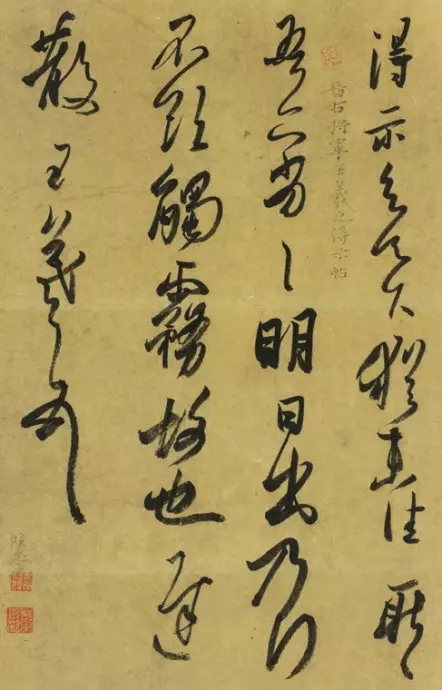 得示知足下猶未佳耿〻
晉右將軍王羲之得示帖
吾亦劣〻明日出乃行
不欲觸霧故也遲
散王羲之頓首